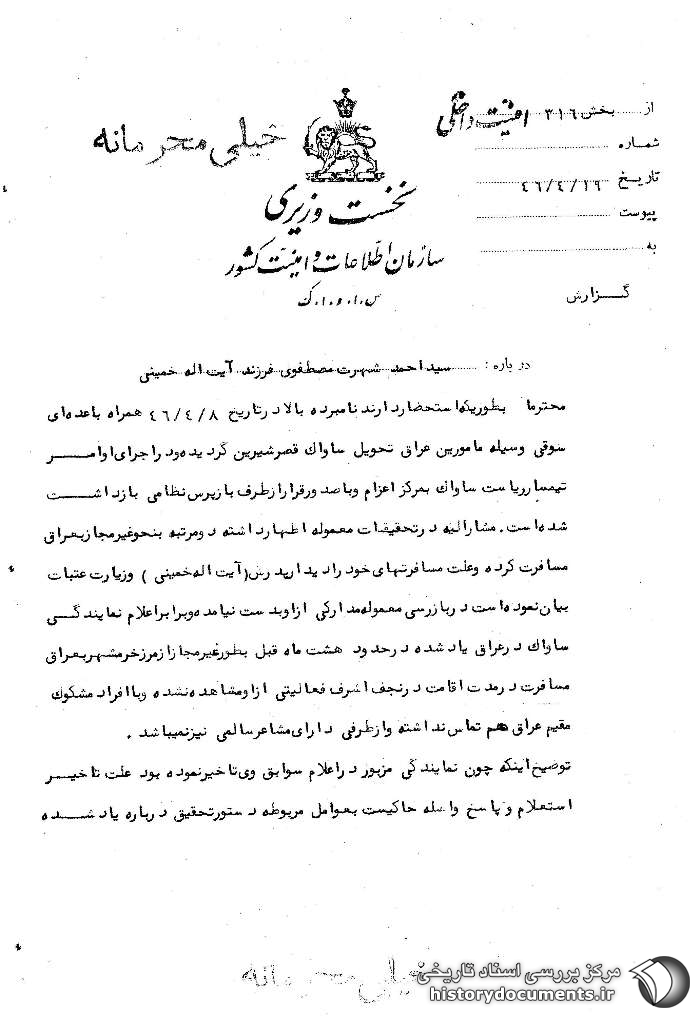 خیلی محرمانه
از بخش ۳۱۶ امنیت داخلی
شماره
تاریخ ۴۶/۴/۱۹
پیوست
به
گزارش
نخست وزیری
سازمان اطلاعات و امنیت کشور
س.ا.و.ا.ک
درباره : سید احمد شهرت مصطفوی فرزند آیت اله خمینی
محترما بطوریکه استحضار دارند نامبرده بالا در تاریخ ۴۶/۴/۸ همراه با عده ای
سوقی وسیله مامورین عراق تحویل ساواک قصرشیرین گردیده و در اجرای اوامر
تیمسار ریاست ساواک بمرکز اعزام و با صدور قرار از طرف بازپرس نظامی بازداشت
شده است . مشارالیه در تحقیقات معموله اظهار داشته دو مرتبه بنحو غیرمجاز بعراق
مسافرت کرده و علت مسافرتهای خود را دیدار پدرش (آیت اله خمینی ) و زیارت عتبات
بیان نموده است در بازرسی معموله مدارکی از او بدست نیامده و برابر اعلام نمایندگی
ساواک در عراق یاد شده در حدود هشت ماه قبل بطور غیرمجاز از مرز خرمشهر بعراق
مسافرت در مدت اقامت در نجف اشرف فعالیتی از او مشاهده نشده و با افراد مشکوک
مقیم عراق هم تماس نداشته و از طرفی دارای مشاعر سالمی نیز نمیباشد .
توضیح اینکه چون نمایندگی مزبور در اعلام سوابق وی تاخیر نموده بود علت تاخیر
استعلام و پاسخ واصله حاکیست بعوامل مربوطه دستور تحقیق درباره یاد شده
خیلی محرمانه
مرکز بررسی اسناد تاریخی
historydocuments.ir